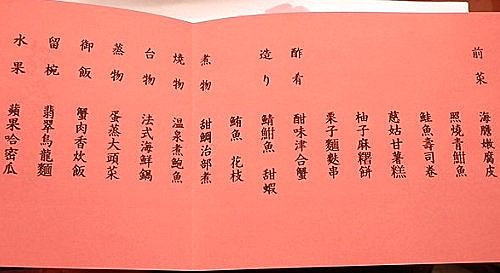 前菜 海膽嫩腐皮
照燒青魽魚
鮭魚壽司卷
慈姑甘薯糕
柚子麻糬餅
栗子麵麩串
酢肴 酣味津合蟹
造り 鯖魽魚 甜蝦
鮪魚 花枝
煮物 甜鯛治部煮
燒物 溫泉煮鮑魚
台物 法式海鮮鍋
蒸物 蛋蒸大頭菜
御飯 蟹肉香炊飯
留椀 翡翠烏龍麵
水果 蘋果哈密瓜